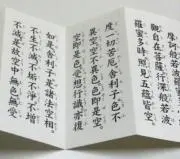 摩訶般若波羅
觀自在菩薩行深般若波
羅蜜多時照見五蘊皆空。
度一切苦厄。舍利子色不
異空。空不異色。色即是空。
空即是色。受想行識亦復
如是。舍利子是諸法空相。
不生不滅。不垢不淨。不增
不減。是故空中無色。無受